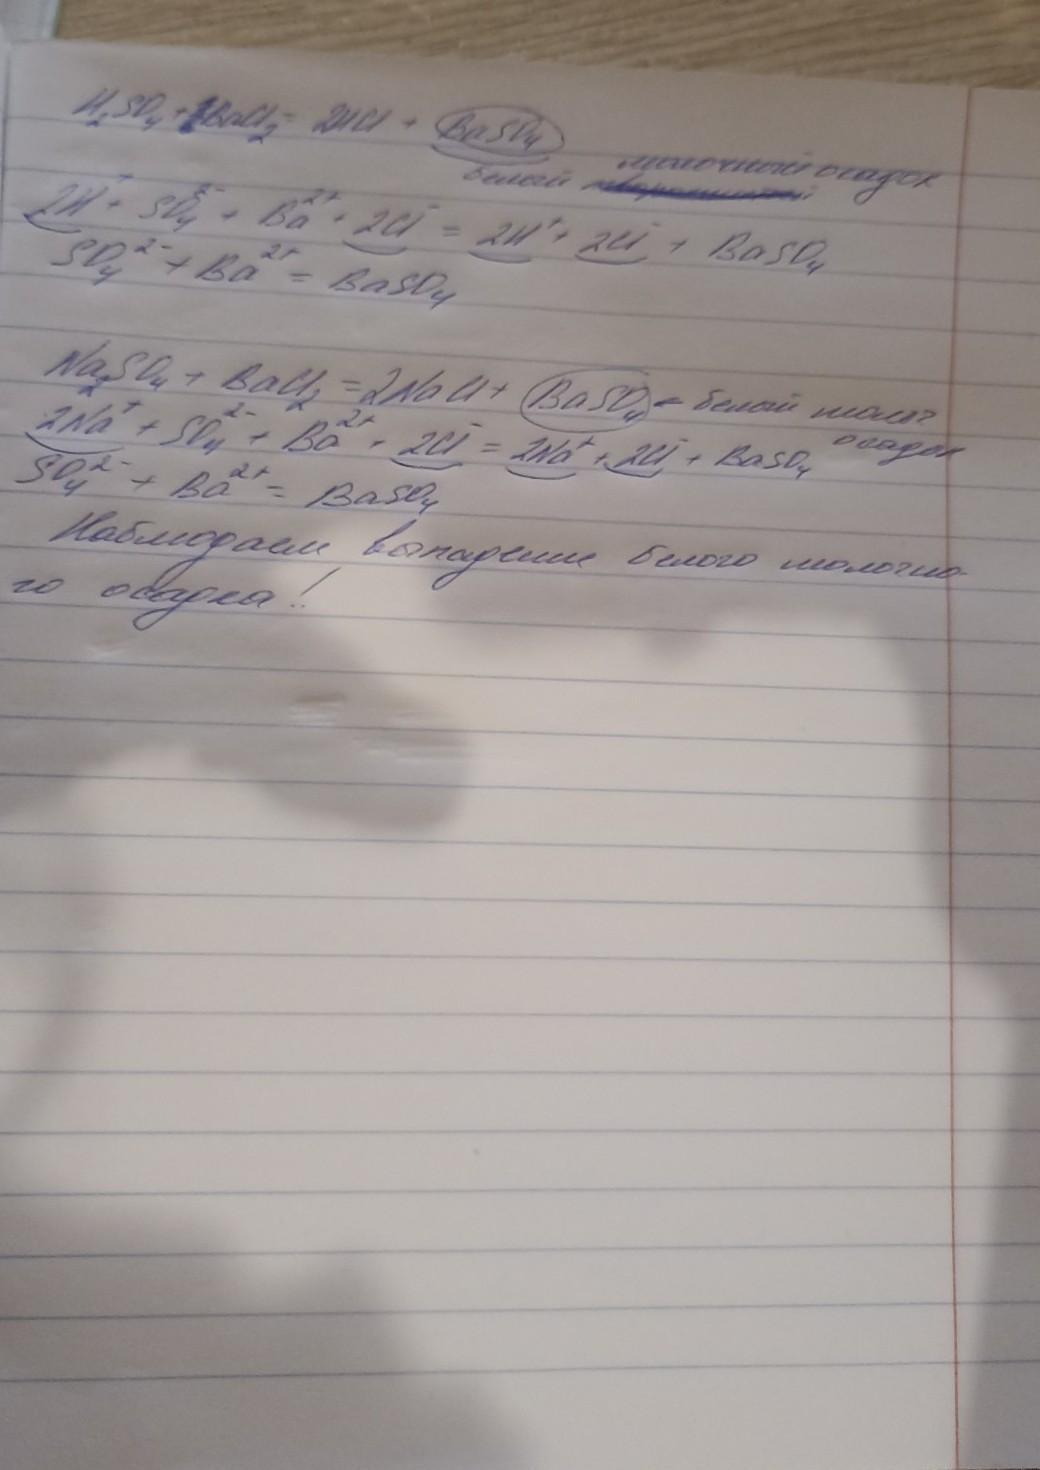 H₂SO₄ + BaCl₂ = 2HCl + BaSO₄
белый молочный осадок
2H⁺ + SO₄²⁻ + Ba²⁺ + 2Cl⁻ = 2H⁺ + 2Cl⁻ + BaSO₄
SO₄²⁻ + Ba²⁺ = BaSO₄
Na₂SO₄ + BaCl₂ = 2NaCl + BaSO₄ - белый
осадок
2Na⁺ + SO₄²⁻ + Ba²⁺ + 2Cl⁻ = 2Na⁺ + 2Cl⁻ + BaSO₄
SO₄²⁻ + Ba²⁺ = BaSO₄
Наблюдаем выпадение белого молочно-
го осадка!